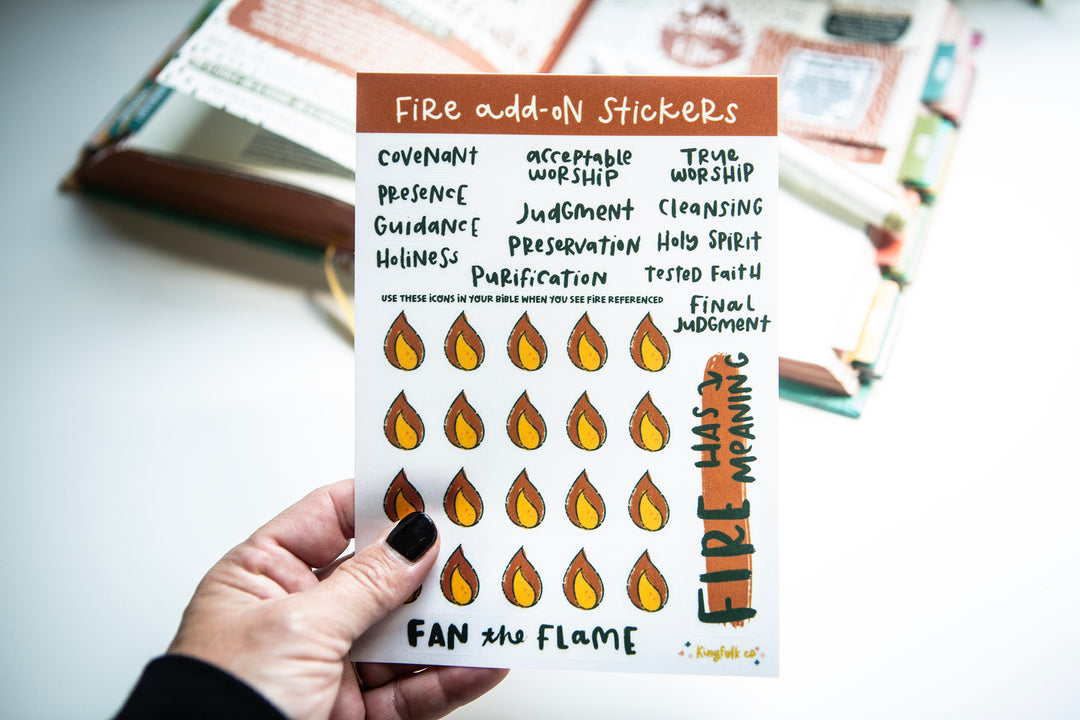 FiRe add-oN StickeRs
coveNaNt
acceptable
WORSHiP
TRue
WORSHiP
PReseNcE
JudGmeNt
CleaNSiNG
GuidaNcE
PReseRVatioN
Holy SPiRit
HoliNeSs
PuRificatioN
teSted Faith
USE THESE iCONS iN YOUR BiBLE WHEN YOU SEE FiRE REFERENCED
FiNal
JuDGmeNt
FIRE HAS
MeANING
FAN the FLAME
Kingfolk co